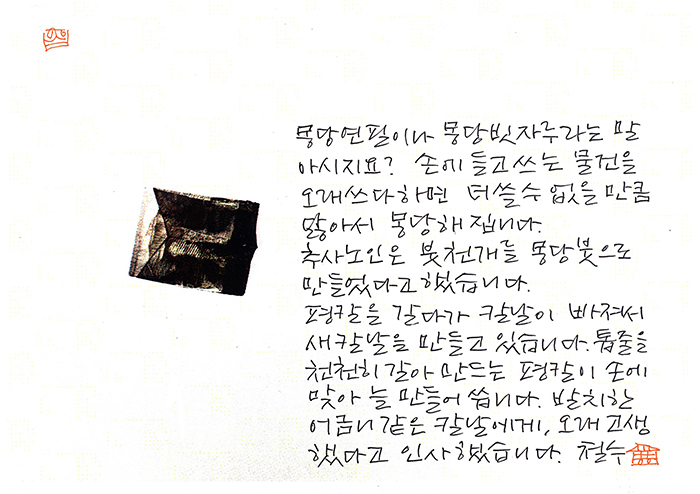 몽당연필이나 몽당빗자루라는 말
아시지요? 손에 들고 쓰는 물건을
오래쓰다하면 더쓸수 없을 만큼
닳아서 몽당해 집니다.
추사노인은 붓천개를 몽당붓으로
만들었다고했습니다.
평칼을 갈다가 칼날이 빠져서
새칼날을 만들고 있습니다. 톱줄을
천천히 갈아 만드는 평칼이 손에
맞아 늘 만들어 씁니다. 발치한
어금니 같은 칼날에게, 오래 고생
했다고 인사했습니다. 철수